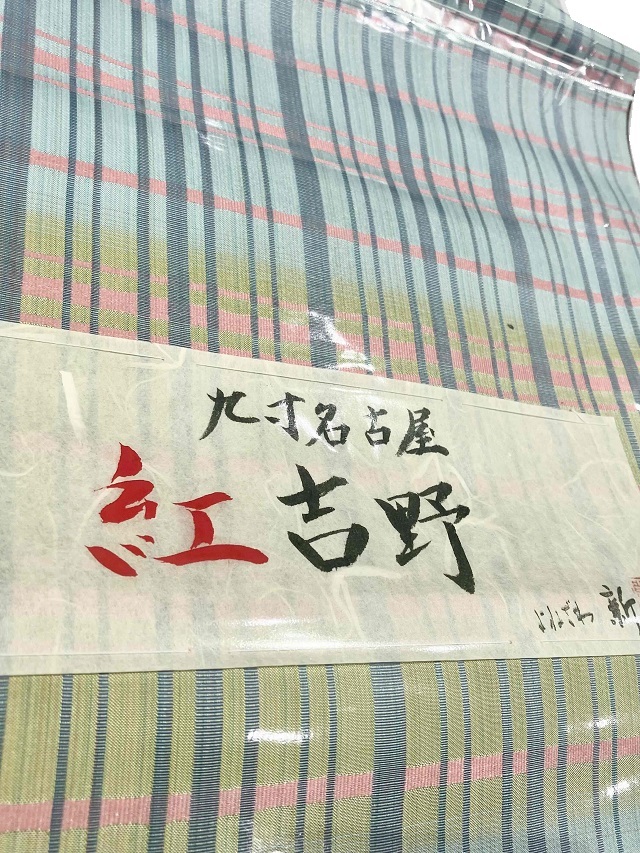 九寸名古屋
紅吉野
よねざわ 新